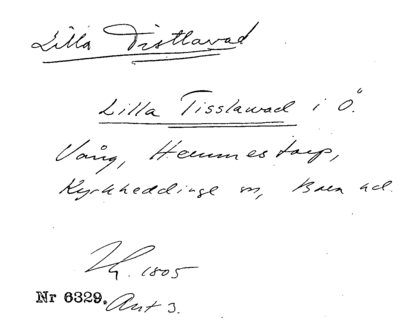 Lilla Tistlavad
Lilla Tisslawad i Ö.
Vång, Hemmestorp,
Kyrkheddinge sn, Bara hd.
1805
Nr 6329. Akt 3.